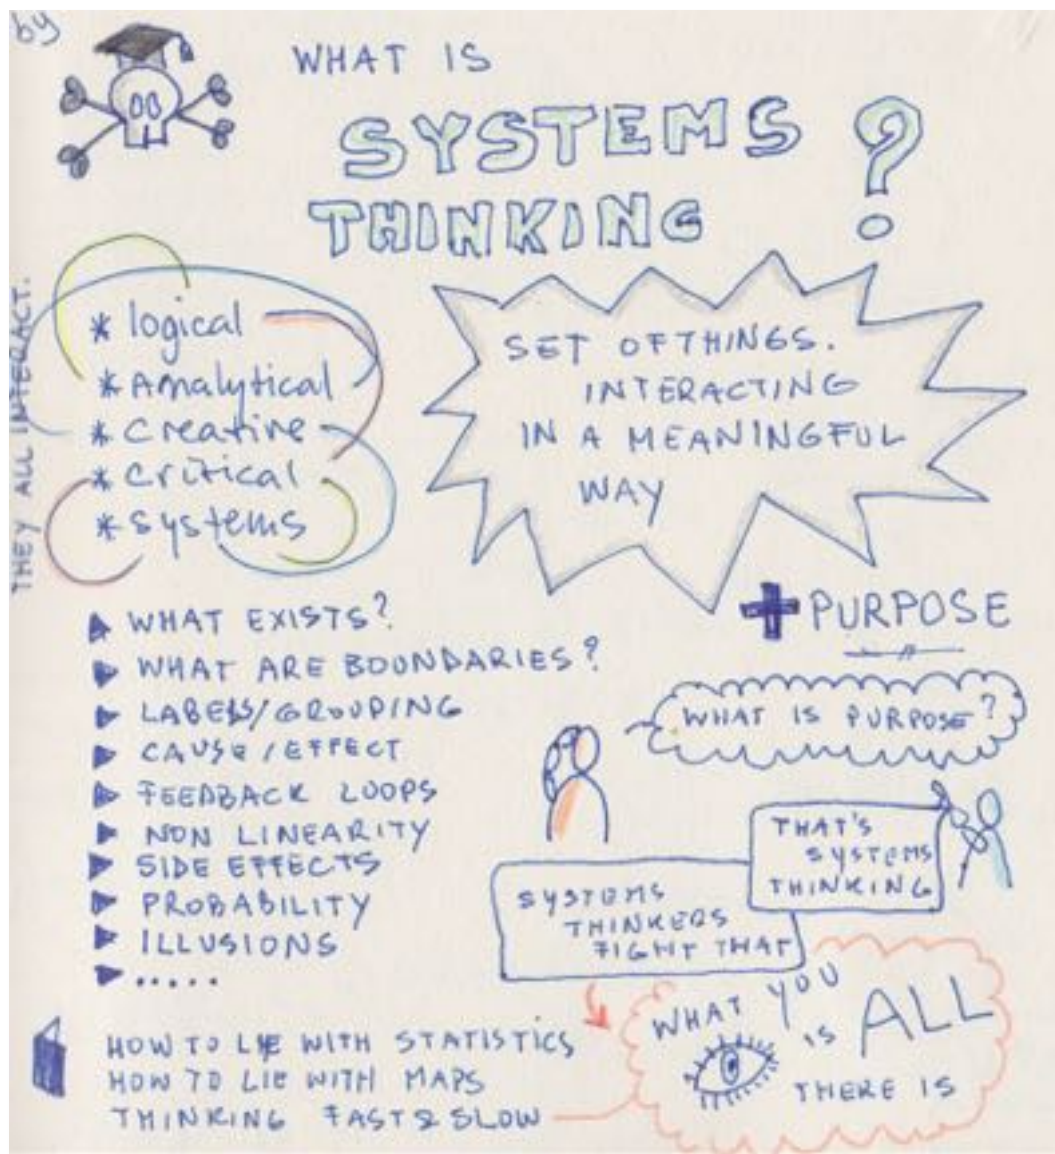 by
WHAT IS
SYSTEMS ?
THINKING
THEY ALL INTERACT.
* logical
* Analytical
* creative
* critical
* systems
SET OF THINGS.
INTERACTING
IN A MEANINGFUL
WAY
+ PURPOSE
WHAT EXISTS?
WHAT ARE BOUNDARIES?
LABELS/GROUPING
CAUSE/EFFECT
FEEDBACK LOOPS
NON LINEARITY
SIDE EFFECTS
PROBABILITY
ILLUSIONS
.....
WHAT IS PURPOSE?
THAT'S
SYSTEMS
THINKING
SYSTEMS
THINKERS
FIGHT THAT
WHAT YOU
IS ALL
THERE IS
HOW TO LIE WITH STATISTICS
HOW TO LIE WITH MAPS
THINKING FAST & SLOW